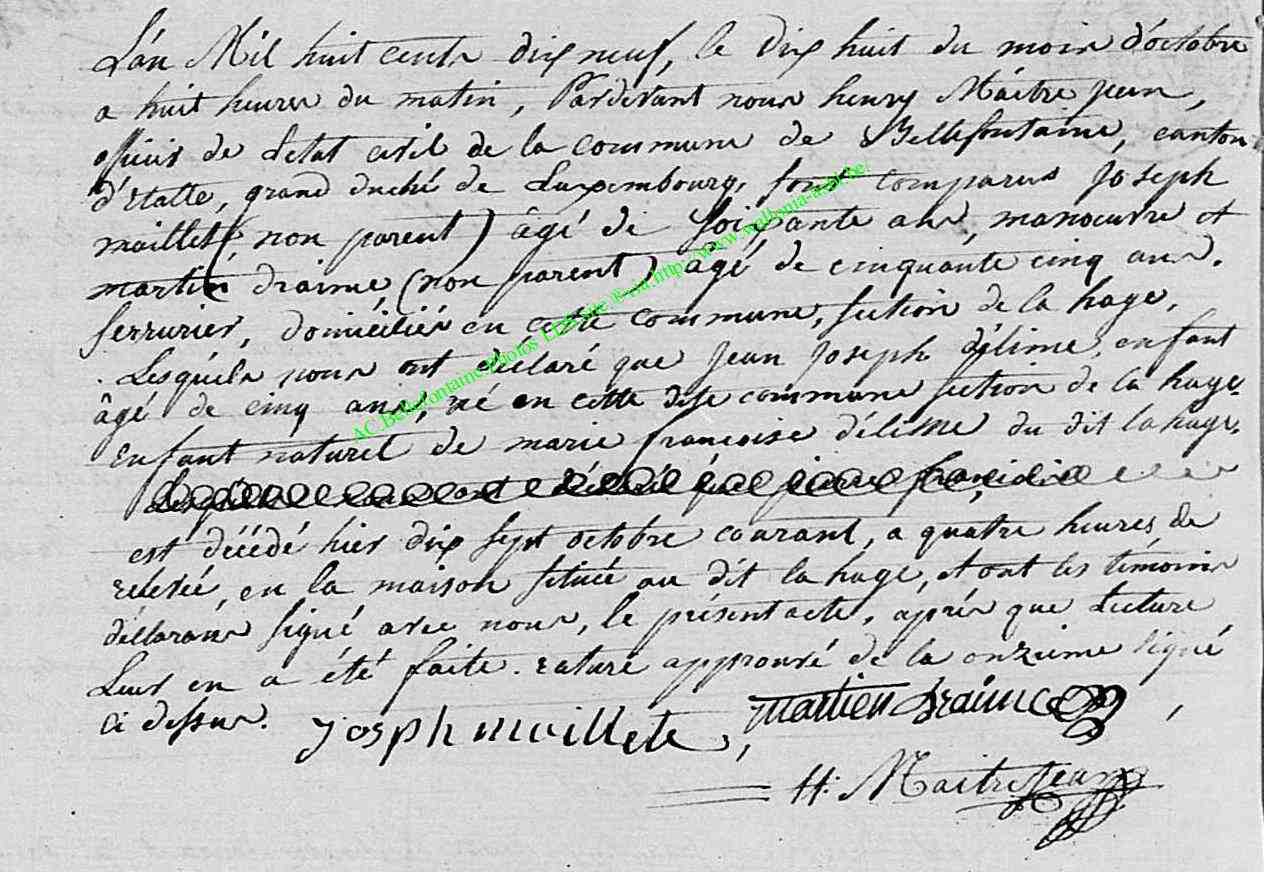 L'an Mil huit cents dix neuf, le Dix huit du mois d'octobre
a huit heures du matin, Pardevant nous henry Maitre jean,
officier de L'etat civil de la commune de Bellefontaine, canton
d'Etalle, grand duché de Luxembourg, sont comparus Joseph
maillet (non parent) âgé de Soixante ans, manoeuvre et
martin draime (non parent) âgé de cinquante cinq ans,
serrurier, domiciliés en cette commune, section de la hage,
Lesquels nous ont declaré que Jean Joseph délime, enfant
âgé de cinq ans, né en cette dite commune section de la hage
Enfant naturel de marie françoise délime du dit la hage,
est décédé hier dix sept octobre courant, a quatre heures de
relevée, en la maison située au dit la hage, et ont les témoins
déclarans signé avec nous, le présent acte, après que Lecture
Leur en a été faite. rature approuvé de la onzieme ligne
ci dessus.
Josph maillete, martien draime,
H: Maitrejean
AC Bellefontaine Photos
http://www.wallonia-asbl.be